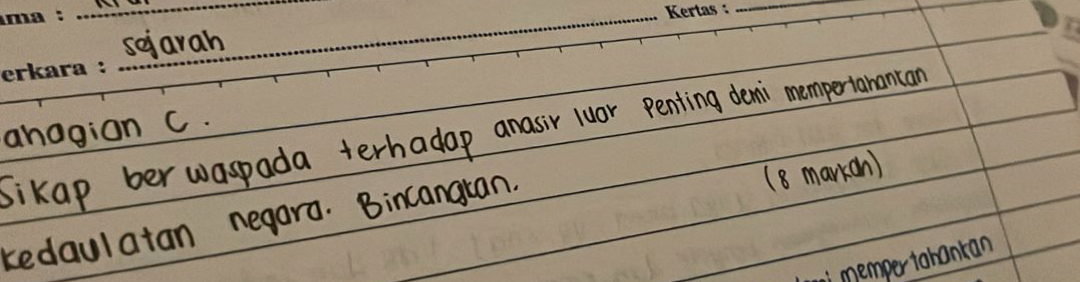 ama :
Kertas :
erkara : sejarah
ahagian C.
Sikap berwaspada terhadap anasir luar penting demi mempertahankan
kedaulatan negara. Bincangkan.
(8 markah)
mempertahankan